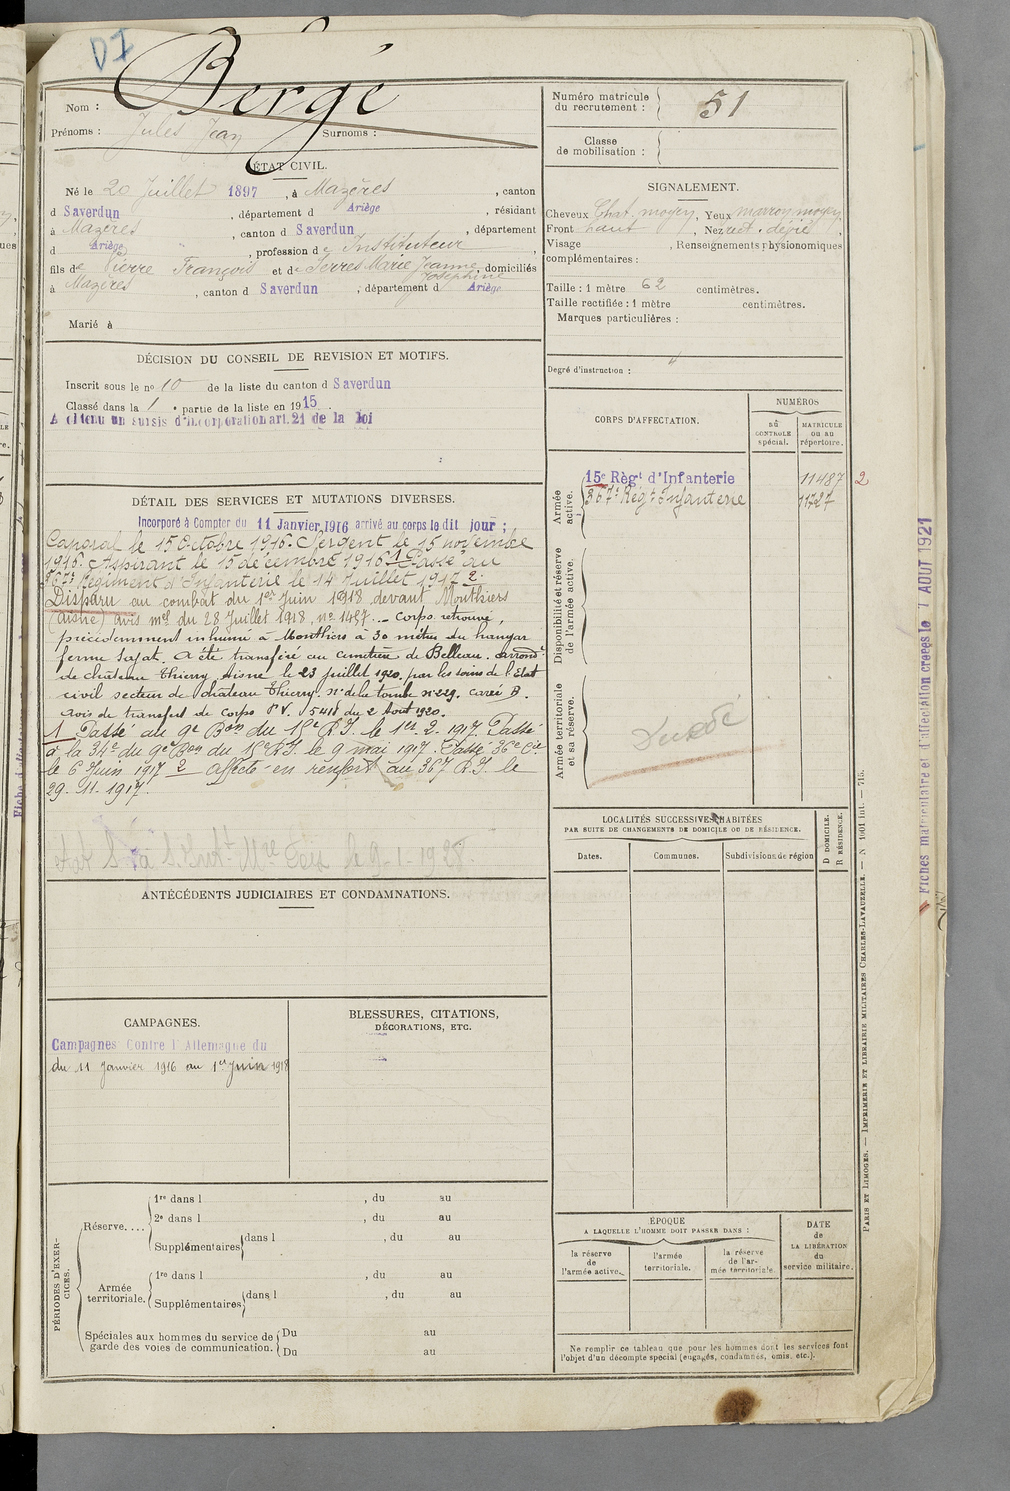 DI
Nom : Bergé
Prénoms : Jules Jean Surnoms :
ÉTAT CIVIL.
Né le 20 Juillet 1897, à Mazères, canton
d Saverdun, département d Ariège, résidant
à Mazères, canton d Saverdun, département
d Ariège, profession de Instituteur
fils de Pierre François et de Serres Marie Jeanne Joséphine, domiciliés
à Mazères, canton d Saverdun, département d Ariège
Marié à
DÉCISION DU CONSEIL DE REVISION ET MOTIFS.
Inscrit sous le no 10 de la liste du canton d Saverdun
Classé dans la 1 e partie de la liste en 1915.
A obtenu un sursis d'incorporation art. 21 de la loi
DÉTAIL DES SERVICES ET MUTATIONS DIVERSES.
Incorporé à Compter du 11 Janvier 1916 arrivé au corps le dit jour ;
Caporal le 15 Octobre 1916. Sergent le 15 novembre
1916. Aspirant le 15 décembre 1916 1 Passé au
367e Régiment d'Infanterie le 14 Juillet 1917 2.
Disparu au combat du 1er Juin 1918 devant Monthiers
(Aisne) avis mel du 28 Juillet 1918, no 1457. Corps retrouvé,
précédemment inhumé à Monthiers à 30 mètres du hangar
ferme . A été transféré au cimetière de Belleau. arrondt
de château Thierry, Aisne le 23 juillet 1920, par les soins de l'Etat
civil secteur de château Thierry. No de la tombe no 229. Carré B.
Avis de transfert de corps P.V. 5418 du 2 Aout 1920.
1 Passé au 9e Bon du 15e R.I. le 1er 2. 1917. Passé
à la 34e du 9e Bon du 15e R.I. le 9 mai 1917. Passé 36e Cie
le 6 Juin 1917 2 affecté en renfort au 367 R.I. le
29. 11. 1917.
le 9-1-1928
ANTÉCÉDENTS JUDICIAIRES ET CONDAMNATIONS.
CAMPAGNES.
Campagnes Contre l'Allemagne du
du 11 Janvier 1916 au 1er Juin 1918
BLESSURES, CITATIONS,
DÉCORATIONS, ETC.
PÉRIODES D'EXERCICES.
Réserve....
1re dans l , du au
2e dans l , du au
Supplémentaires dans l , du au
Armée territoriale.
1re dans l , du au
Supplémentaires dans l , du au
Spéciales aux hommes du service de garde des voies de communication.
Du au
Du au
Numéro matricule du recrutement : 51
Classe de mobilisation :
SIGNALEMENT.
Cheveux Chat. moyen, Yeux marron moyen
Front haut, Nez rect. ,
Visage , Renseignements physionomiques
complémentaires :
Taille : 1 mètre 62 centimètres.
Taille rectifiée : 1 mètre centimètres.
Marques particulières :
Degré d'instruction :
CORPS D'AFFECTATION.
NUMÉROS
au CONTROLE spécial.
MATRICULE ou au répertoire.
Armée active.
15e Régt d'Infanterie 11487 2
367e Régt Infanterie 11727
Disponibilité et réserve de l'armée active.
Armée territoriale et sa réserve.
Décédé
LOCALITÉS SUCCESSIVES HABITÉES
PAR SUITE DE CHANGEMENTS DE DOMICILE OU DE RÉSIDENCE.
Dates. Communes. Subdivisions de région
D DOMICILE. R RÉSIDENCE.
ÉPOQUE
A LAQUELLE L'HOMME DOIT PASSER DANS :
la réserve de l'armée active.
l'armée territoriale.
la réserve de l'armée territoriale.
DATE de LA LIBÉRATION du service militaire.
Ne remplir ce tableau que pour les hommes dont les services font
l'objet d'un décompte spécial (engagés, condamnés, omis, etc.).
PARIS ET LIMOGES. — IMPRIMERIE ET LIBRAIRIE MILITAIRES CHARLES-LAVAUZELLE. — N° 1001 int. — 715.
Fiches matriculaire et d'affectation créées le 7 AOUT 1921